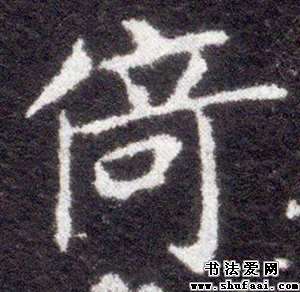 倚
书法爱网
www.shufaai.com